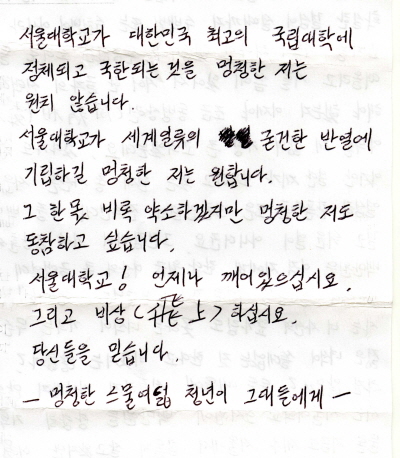 서울대학교가 대한민국 최고의 국립대학에
정체되고 국한되는 것을 멍청한 저는
원치 않습니다.
서울대학교가 세계일류의 굳건한 반열에
기립하길 멍청한 저는 원합니다.
그 한 몫, 비록 약소하겠지만 멍청한 저도
동참하고 싶습니다.
서울대학교! 언제나 깨어있으십시요.
그리고 비상(飛上) 하십시요.
당신들을 믿습니다.
— 멍청한 스물여덟 청년이 그대들에게 —